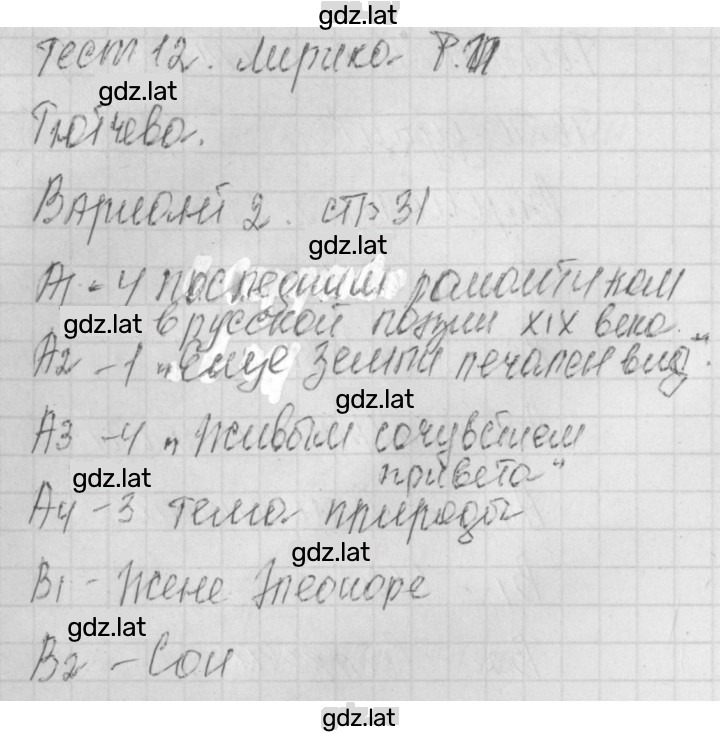 gdz.lat
Тест 12. Лирика Ф.И
gdz.lat
Тютчева.
Вариант 2. стр 31
gdz.lat
А1 - 4 последним романтиком
gdz.lat в русской поэзии XIX века.
А2 - 1 „Еще земли печален вид".
gdz.lat
А3 - 4 „Живым сочувствием
привета"
gdz.lat
А4 - 3 тема природы
gdz.lat
В1 - Жене Элеоноре
gdz.lat
В2 - Сон
gdz.lat